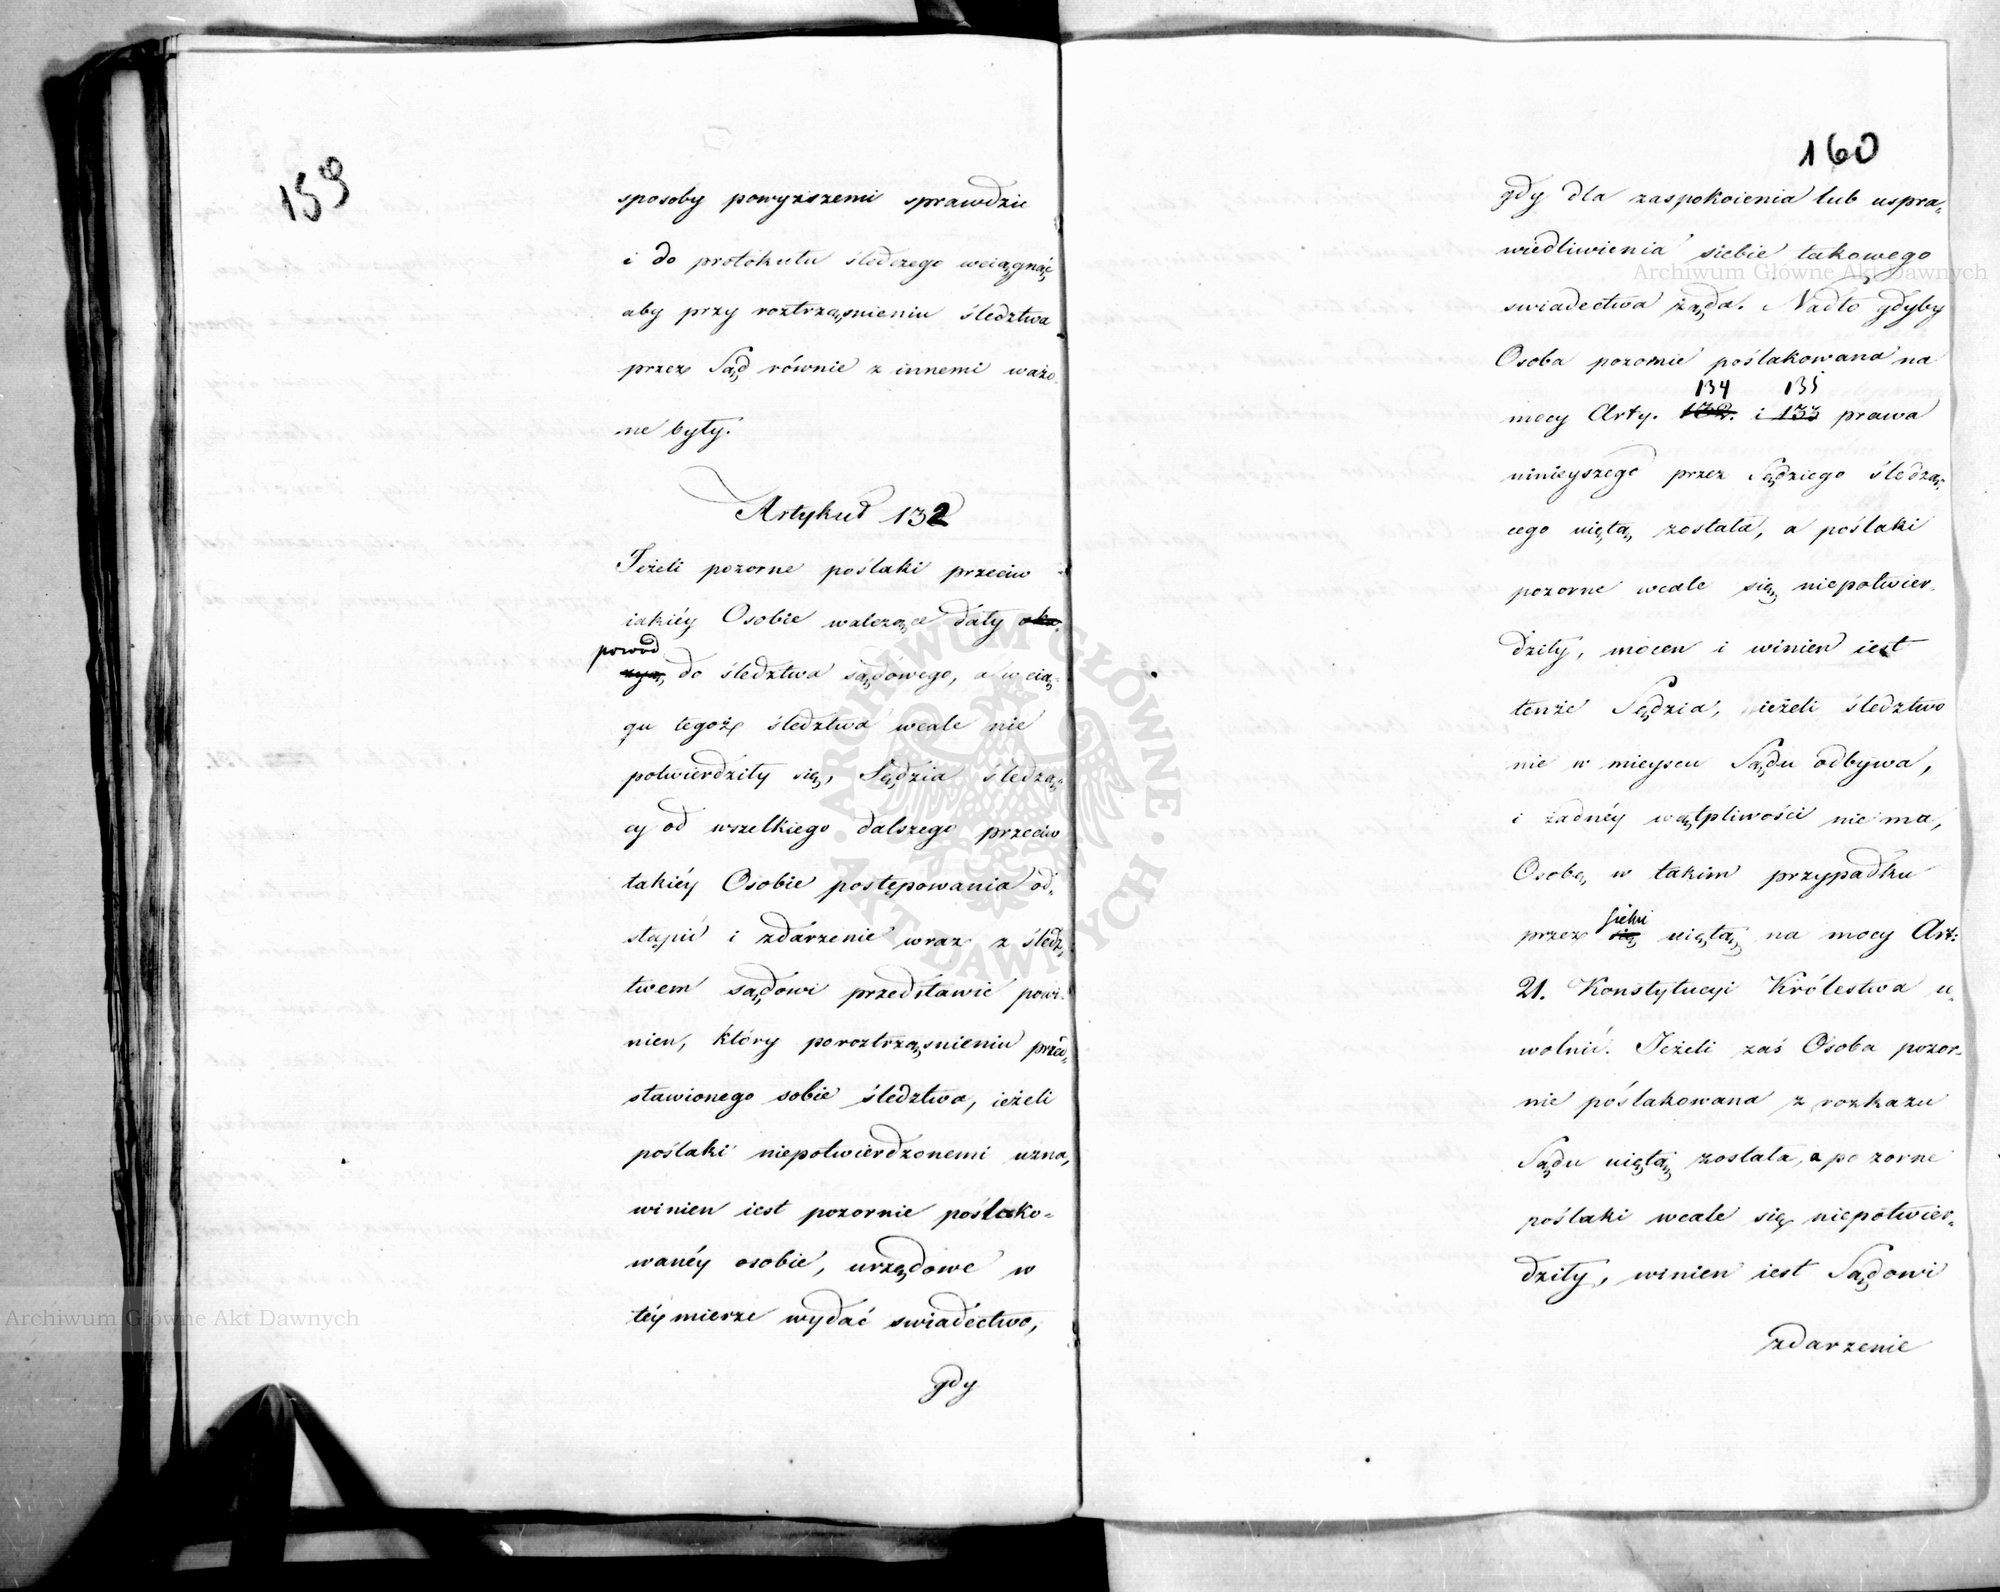 159
sposoby powyższemi sprawdzić
i do protokułu śledczego wciągnąć,
aby przy roztrząśnieniu śledztwa
przez Sąd równie z innemi ważo-
ne były.
Artykuł 132
Jeżeli pozorne poślaki przeciw
iakiéy Osobie walczące dały oka-
powód
zyą, do śledztwa sądowego, a w cią-
gu tegoż śledztwa wcale nie
potwierdziły się, Sędzia śledzą-
cy od wszelkiego dalszego przeciw
takiéy Osobie postępowania od-
stąpić i zdarzenie wraz z śledz-
twem sądowi przedstawić powi-
nien, który po roztrząśnieniu przed-
stawionego sobie śledztwa, ieżeli
poślaki niepotwierdzonemi uzna,
winien iest pozornie poślako-
wanéy osobie, urzędowe w
téy mierze wydać swiadectwo,
gdy
160
gdy dla zaspokoienia lub uspra-
wiedliwienia siebie takowego
swiadectwa żąda. Nadto gdyby
Osoba pozornie poślakowana na
134 135
mocy Arty. 132. i 133 prawa
ninieyszego przez Sędziego śledzą-
cego uiętą została, a poślaki
pozorne wcale się niepotwier-
dziły, mocen i winien iest
tenże Sędzia, ieżeli śledztwo
nie w mieyscu Sądu odbywa,
i żadnéy wątpliwości nie ma,
Osobę w takim przypadku
siebie
przez się uiętą na mocy Art:
21. Konstytucyi Królestwa u-
wolnić. Jeżeli zaś Osoba pozor-
nie poślakowana z rozkazu
Sądu uiętą została, a pozorne
poślaki wcale się niepotwier-
dziły, winien iest Sądowi
zdarzenie
Archiwum Główne Akt Dawnych
Archiwum Główne Akt Dawnych
ARCHIWUM GŁÓWNE AKT DAWNYCH